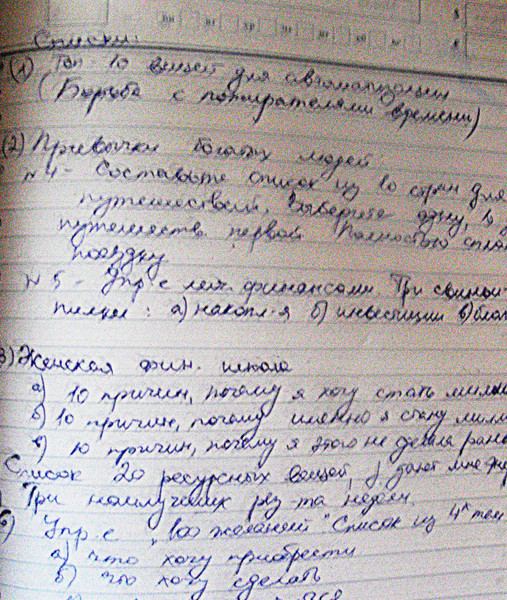 Списки:
(1) Топ-10 вещей для автоматизации
(Борьба с пожирателями времени)
(2) Привычки богатых людей:
№4 - Составьте список из 10 стран для
путешествий. Выберите одну, в
путешеств. первой. Полностью
поездку
№5 - Упр. с лич. финансами. Три свиньи-
пилки: а) накопл-я б) инвестиции в) бла
3) Женская фин. школа
а) 10 причин, почему я хочу стать милли
б) 10 причин, почему именно я стану милли
в) 10 причин, почему я этого не делала рань
Список 20 ресурсных вещей, дают мне
Три наилучших рез-та недели.
6) Упр. с "100 желаний" Список из 4х тем
а) что хочу приобрести
б) что хочу сделать